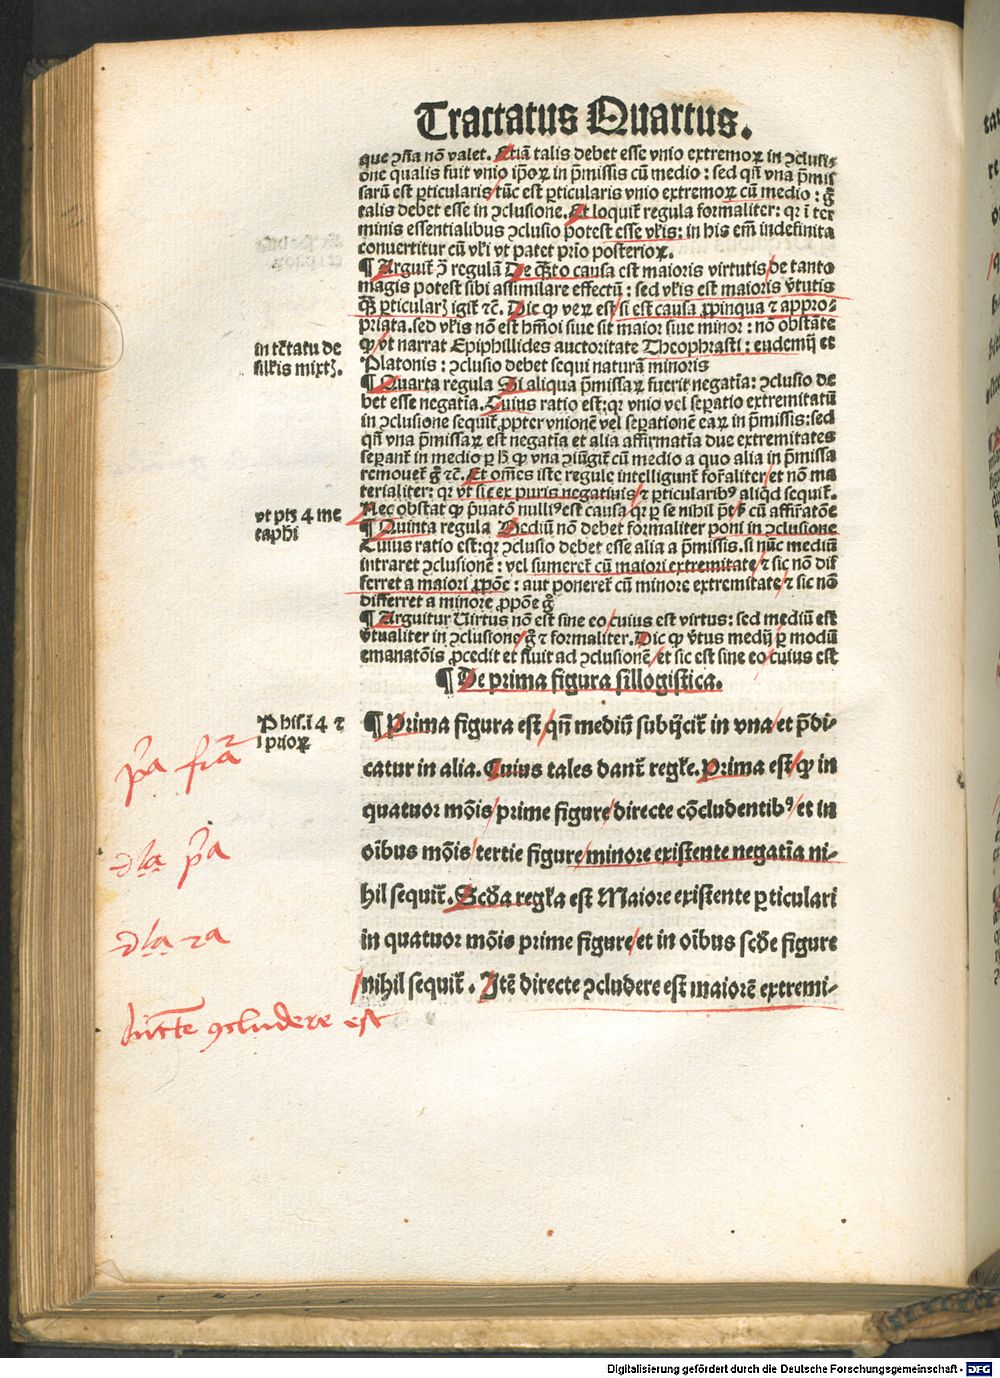 Tractatus Quartus.
que ꝯña nõ valet. Etiã talis debet esse vnio extremoꝝ in ꝯclusi-
one qualis fuit vnio ip̃oꝝ in p̃missis cũ medio: sed qñ vna p̃mis
sarũ est ꝑticularis/tũc est ꝑticularis vnio extremoꝝ cũ medio: g̃
talis debet esse in ꝯclusione. Et loquit̃ regula formaliter: qꝛ ĩ ter
minis essentialibus ꝯclusio potest esse vl̃is: in his em̃ indefinita
conuertitur cũ vl̃i vt patet prio posterioꝝ.
¶ Arguit̃ ꝯ̃ regulã De q̃to causa est maioris virtutis/de tanto
magis potest sibi assimilare effectũ: sed vl̃is est maioris ṽtutis
q̃ꝫ ꝑticularꝭ igit̃ ⁊c̃. Dic ꝙ veꝝ est/si est causa ꝓpinqua ⁊ appro-
priata. sed vl̃is nõ est hm̃oi siue sit maior siue minor: nõ obstãte
ꝙ vt narrat Epiphillides auctoritate Theophrasti: eudemij et
Platonis: ꝯclusio debet sequi naturã minoris
in tc̃tatu de
sill'is mixtꝭ.
¶ Quarta regula Si aliqua p̃missaꝝ fuerit negatĩa: ꝯclusio de
bet esse negatĩa. Cuius ratio est: qꝛ vnio vel seꝑatio extremitatũ
in ꝯclusione sequit̃ ꝓpter vnionẽ vel seꝑationẽ eaꝝ in p̃missis: sed
qñ vna p̃missaꝝ est negatĩa et alia affirmatĩa due extremitates
seꝑant̃ in medio ꝑ h̃ ꝙ vna ꝯiũgit̃ cũ medio a quo alia in p̃missa
remouet̃ g̃ ⁊c̃. Et om̃es iste regule intelligunt̃ for̃aliter/et nõ ma
terialiter: qꝛ vt sic ex puris negatiuis/⁊ ꝑticularibꝰ aliq̃d sequit̃.
Nec obstat ꝙ p̃uatõ nulliꝰ est causa/qꝛ ꝑ se nihil p̃t/s̃ cũ affir̃atõe
vt ptꝭ 4 me
taphi
¶ Quinta regula Mediũ nõ debet formaliter poni in ꝯclusione
Cuius ratio est: qꝛ ꝯclusio debet esse alia a p̃missis. si nũc mediũ
intraret ꝯclusionẽ: vel sumeret̃ cũ maiori extremitate/⁊ sic nõ dif
ferret a maiori ꝓpõe: aut poneret̃ cũ minore extremitate/⁊ sic nõ
differret a minore ꝓpõne g̃
¶ Arguitur Uirtus nõ est sine eo/cuius est virtus: sed mediũ est
ṽtualiter in ꝯclusione/g̃ ⁊ formaliter. Dic ꝙ ṽtus medij ꝑ modũ
emanatõis ꝓcedit et fluit ad ꝯclusionẽ/et sic est sine eo/cuius est
¶ De prima figura sillogistica.
Phis. ĩ 4 ⁊
1 prioꝝ
¶ Prima figura est/qñ mediũ subijcit̃ in vna/et p̃di-
catur in alia. Cuius tales dant̃ regl̃e. Prima est/ꝙ in
quatuor mõis/prime figure/directe cõcludentibꝰ/et in
oĩbus mõis/tertie figure/minore existente negatĩa ni-
hil sequit̃. Scd̃a regl̃a est Maiore existente ꝑticulari
in quatuor mõis prime figure/et in oĩbus scd̃e figure
nihil sequit̃. Itẽ directe ꝯcludere est maiorẽ extremi-
p̃a fi̅a
p̃a
2a
ꝯcludere est
Digitalisierung gefördert durch die Deutsche Forschungsgemeinschaft - DFG